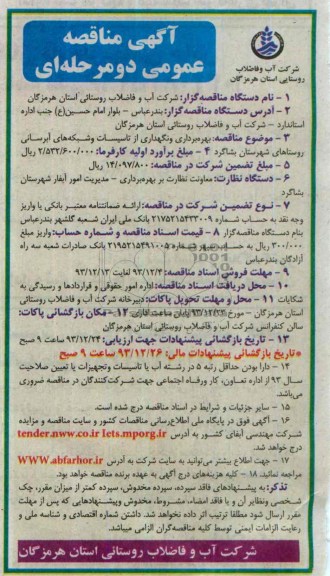 شرکت آب وفاضلاب
روستایی استان هرمزگان
آگهی مناقصه
عمومی دومرحله‌ای
۱ - نام دستگاه مناقصه‌گزار: شرکت آب و فاضلاب روستائی استان هرمزگان
۲ - آدرس دستگاه مناقصه‌گزار: بندرعباس - بلوار امام حسین(ع) جنب اداره
استاندارد - شرکت آب و فاضلاب روستائی استان هرمزگان
۳ - موضوع مناقصه: بهره‌برداری ونگهداری از تاسیسات وشبکه‌های آبرسانی
روستاهای شهرستان بشاگرد ۴ - مبلغ برآورد اولیه کارفرما: ۲/۵۳۲/۶۰۰/۰۰۰ ریال
۵ - مبلغ تضمین شرکت در مناقصه: ۱۴/۰۹۷/۸۰۰ ریال
۶ - دستگاه نظارت: معاونت نظارت بر بهره‌برداری - مدیریت امور آبفار شهرستان
بشاگرد
۷ - نوع تضمین شرکت در مناقصه: ارائه ضمانتنامه معتبر بانکی یا واریز
وجه نقد به حساب شماره ۲۱۷۵۲۱۵۴۳۳۰۰۹ بانک ملی ایران شعبه گلشهر بندرعباس
بنام دستگاه مناقصه‌گزار ۸ - قیمت اسناد مناقصه و شماره حساب: واریز مبلغ
۳۰۰/۰۰۰ ریال به حساب سپهر شماره ۲۱۹۵۲۱۵۴۹۱۰۰۵ بانک صادرات شعبه سه راه
آزادگان بندرعباس
۹ - مهلت فروش اسناد مناقصه: ۹۳/۱۲/۴ لغایت ۹۳/۱۲/۱۳
۱۰ - محل دریافت اسناد مناقصه: اداره امور حقوقی و قراردادها و رسیدگی به
شکایات ۱۱ - محل و مهلت تحویل پاکات: دبیرخانه شرکت آب و فاضلاب روستائی
استان هرمزگان - مورخ ۹۳/۱۲/۲۳ پایان ساعت اداری ۱۲ - مکان بازگشائی پاکات:
سالن کنفرانس شرکت آب و فاضلاب روستائی استان هرمزگان
۱۳ - تاریخ بازگشائی پیشنهادات جهت ارزیابی: ۹۳/۱۲/۲۴ ساعت ۹ صبح
*تاریخ بازگشائی پیشنهادات مالی: ۹۳/۱۲/۲۶ ساعت ۹ صبح
۱۴ - دارا بودن حداقل رتبه ۵ در رشته آب یا تاسیسات وتجهیزات یا تعیین صلاحیت
سال ۹۳ از اداره تعاون، کار ورفاه اجتماعی جهت شرکت‌کنندگان در مناقصه ضروری
می‌باشد.
۱۵ - سایر جزئیات و شرایط در اسناد مناقصه درج شده است.
۱۶ - آگهی فوق در پایگاه ملی اطلاع‌رسانی مناقصات کشور و سایت مناقصه و مزایده
شرکت مهندسی آبفای کشور به آدرس tender.nww.co.ir Iets.mporg.ir
درج خواهد شد.
۱۷ - جهت اطلاع بیشتر می‌توانید به سایت شرکت به آدرس WWW.abfarhor.ir
مراجعه نمائید. ۱۸ - کلیه هزینه‌های درج آگهی به عهده برنده مناقصه خواهد بود.
تذکر: به پیشنهادهای فاقد سپرده، سپرده مخدوش، سپرده کمتر از میزان مقرر، چک
شخصی ونظایر آن و یا فاقد امضاء، مشروط، مخدوش وپیشنهادهایی که پس از مهلت
مقرر ارسال شود مطلقا ترتیب اثر داده نخواهد شد. داشتن شماره اقتصادی و شناسه ملی و
رعایت الزامات ایمنی توسط کلیه مناقصه‌گران الزامی میباشد.
شرکت آب و فاضلاب روستائی استان هرمزگان